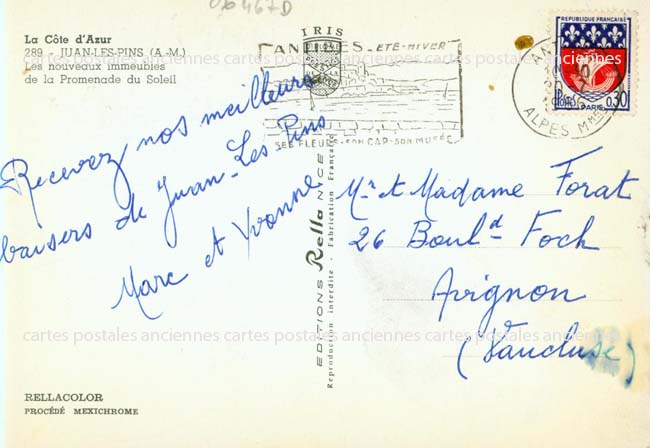 La Côte d'Azur
289 - JUAN-LES-PINS (A-M.)
Les nouveaux immeubles
de la Promenade du Soleil
IRIS
ANTIBES - ETE-HIVER
SES FLEURS - SON CAP - SON MUSÉE
REPUBLIQUE FRANÇAISE
PARIS
0,30
ALPES Mmes
Recevez nos meilleurs
baisers de Juan-Les Pins
Marc et Yvonne
EDITIONS Rella NICE
Reproduction interdite - Fabrication Française
Mr et Madame Forat
26 Boul.d Foch
Avignon
(Vaucluse)
cartes postales anciennes cartes postales anciennes cartes postales anciennes
cartes postales anciennes cartes postales anciennes cartes postales anciennes
RELLACOLOR
PROCÉDÉ MEXICHROME